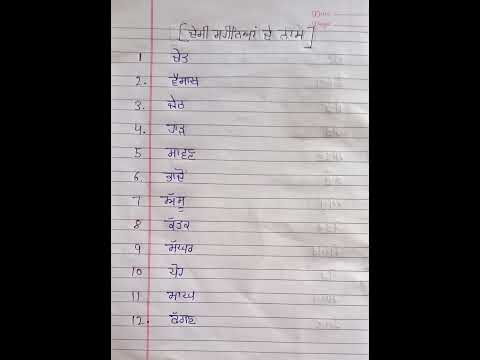 [ਦੇਸੀ ਮਹੀਨਿਆਂ ਦੇ ਨਾਮ]
1 ਚੇਤ
2. ਵੈਸਾਖ
3. ਜੇਠ
4. ਹਾੜ
5 ਸਾਵਣ
6. ਭਾਦੋਂ
7 ਅੱਸੂ
8 ਕੱਤਕ
9 ਮੱਘਰ
10 ਪੋਹ
11 ਮਾਘ
12. ਫੱਗਣ